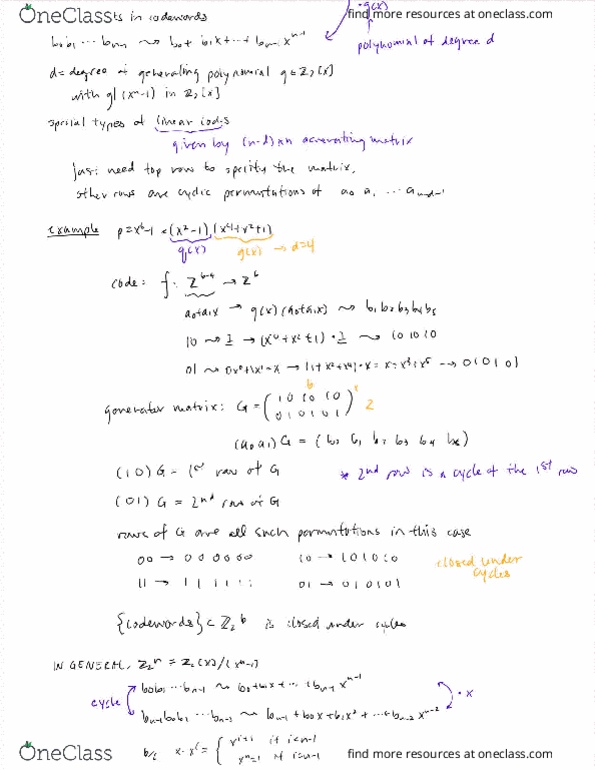 OneClass
ts in codewords
find more resources at oneclass.com
· g(x)
b₀b₁ ··· bₙ₋₁ ⤳ b₀ + b₁x + ··· + bₙ₋₁xⁿ⁻¹
polynomial of degree d
d = degree of generating polynomial g ∈ Z₂[x]
with g | (xⁿ-1) in Z₂[x]
special types of linear codes
given by (n-d) x n generating matrix
just need top row to specify the matrix,
other rows are cyclic permutations of a₀ a₁ ···
example p = x⁶-1 = (x²-1)(x⁴+x²+1)
q(x) g(x) → d=4
code: f: Z⁶⁻⁴ → Z⁶
a₀+a₁x → g(x)(a₀+a₁x) ⤳ b₀b₁b₂b₃b₄b₅
10 ⤳ 1 → (x⁴+x²+1)·1 ⤳ 101010
01 ⤳ 0x⁰+1x¹=x → (1+x²+x⁴)·x = x+x³+x⁵ → 010101
6
generator matrix: G = (101010
010101) 2
(a₀a₁)G = (b₀ b₁ b₂ b₃ b₄ b₅)
(10)G = 1st row of G
* 2nd row is a cycle of the 1st row
(01)G = 2nd row of G
rows of G are all such permutations in this case
00 → 000000 10 → 101010
closed under cycles
11 → 111111 01 → 010101
{codewords} ⊂ Z₂⁶ is closed under cycles
IN GENERAL, Z₂ⁿ = Z₂[x]/(xⁿ-1)
b₀b₁ ··· bₙ₋₁ ⤳ b₀+b₁x+ ··· +bₙ₋₁xⁿ⁻¹
cycle · x
bₙ₋₁b₀b₁ ··· bₙ₋₂ ⤳ bₙ₋₁+b₀x+b₁x²+ ··· +bₙ₋₂xⁿ⁻¹
b/c x·xⁱ = { xⁱ⁺¹ if i<n-1
xⁿ=1 if i=n-1
OneClass
find more resources at oneclass.com